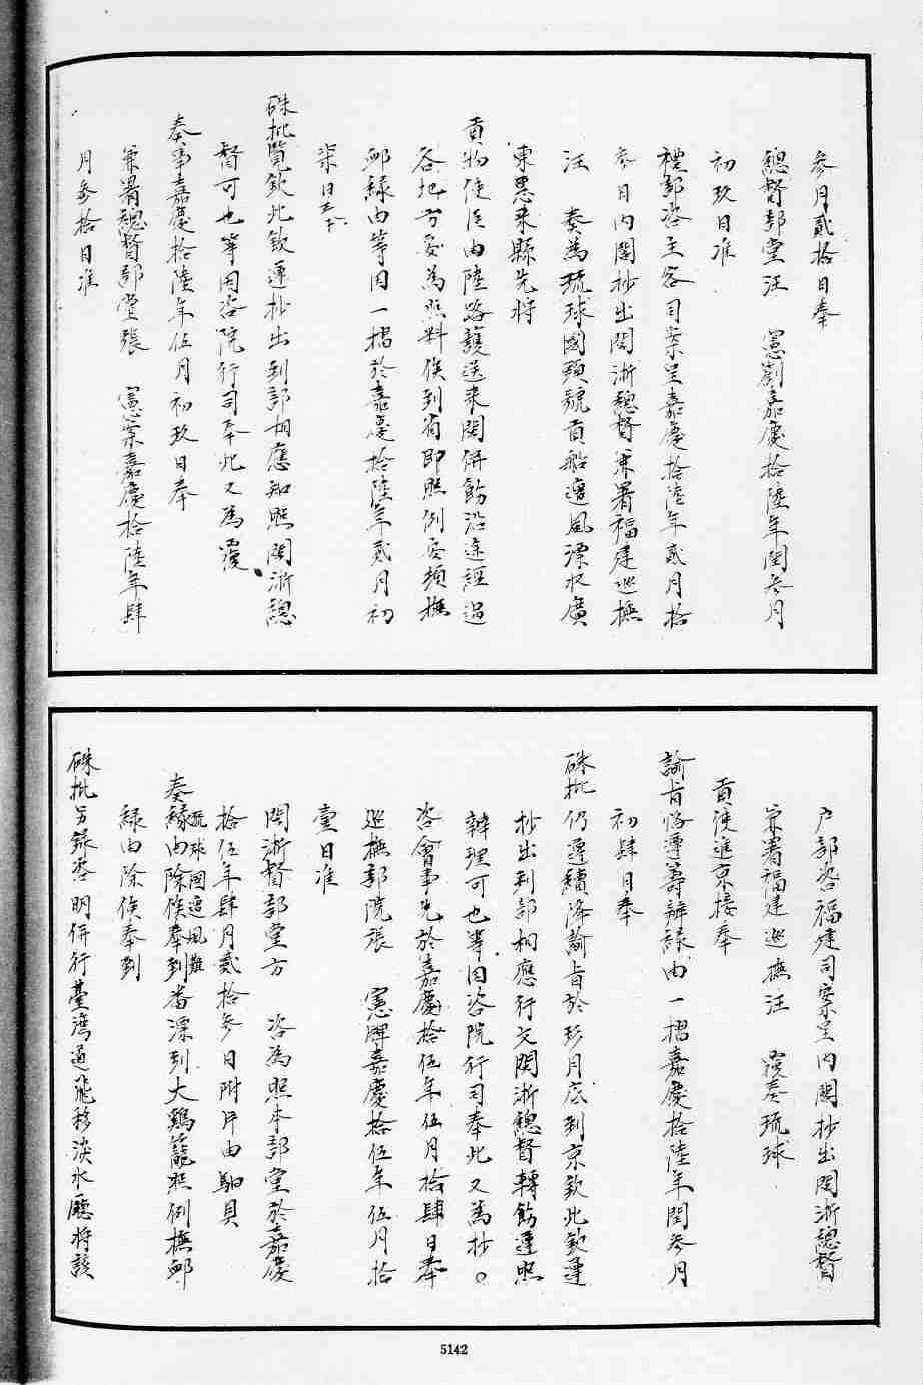 參月貳拾日奉
總督部堂汪 憲劄嘉慶拾陸年閏參月
初玖日准
禮部咨主客司案呈嘉慶拾陸年貳月拾
參日內閣抄出閩浙總督兼署福建巡撫
汪 奏為琉球國頭號貢船遭風漂收廣
東惠來縣先將
貢物使臣由陸路護送來閩併飭沿途經過
各地方妥為照料俟到省即照例安頓撫
卹緣由等因一摺於嘉慶拾陸年貳月初
柒日奉
硃批覽欽此欽遵抄出到部相應知照閩浙總
督可也等因咨院行司奉此又為覆
奏事嘉慶拾陸年伍月初玖日奉
兼署總督部堂張 憲案嘉慶拾陸年肆
月參拾日准
戶部咨福建司案呈內閣抄出閩浙總督
兼署福建巡撫汪 覆奏琉球
貢使進京接奉
諭旨恪遵籌辦緣由一摺嘉慶拾陸年閏參月
初肆日奉
硃批仍遵續降諭旨於玖月底到京欽此欽遵
抄出到部相應行文閩浙總督轉飭遵照
辦理可也等因咨院行司奉此又為抄。
咨會事先於嘉慶拾伍年伍月拾肆日奉
巡撫部院張 憲牌嘉慶拾伍年伍月拾
壹日准
閩浙督部堂方 咨為照本部堂於嘉慶
拾伍年肆月貳拾參日附片由馹具
奏琉球國遭風難番漂到大鷄籠照例撫卹
緣由除俟奉到
硃批另錄咨明併行臺灣道飛移淡水廳將該
5142